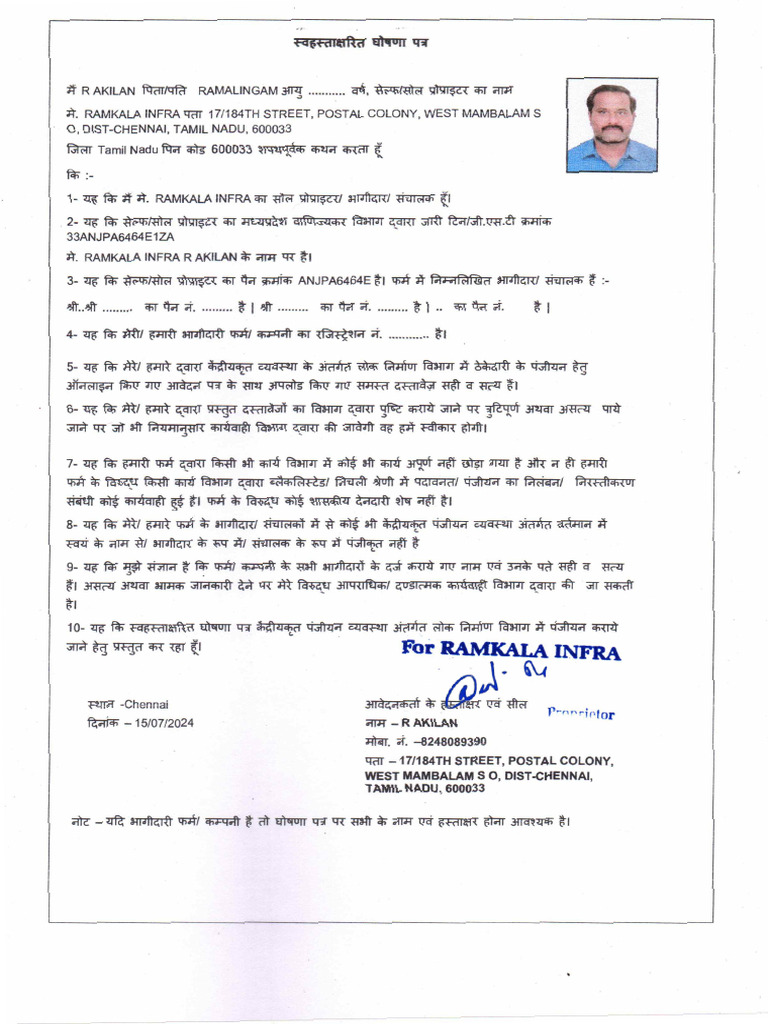 स्वहस्ताक्षरित घोषणा पत्र
मैं R AKILAN पिता/पति RAMALINGAM आयु ........... वर्ष, सेल्फ/सोल प्रोप्राइटर का नाम
मे. RAMKALA INFRA पता 17/184TH STREET, POSTAL COLONY, WEST MAMBALAM S
O, DIST-CHENNAI, TAMIL NADU, 600033
जिला Tamil Nadu पिन कोड 600033 शपथपूर्वक कथन करता हूँ
कि :-
1- यह कि मैं मे. RAMKALA INFRA का सोल प्रोप्राइटर/ भागीदार/ संचालक हूँ।
2- यह कि सेल्फ/सोल प्रोप्राइटर का मध्यप्रदेश वाणिज्यकर विभाग द्वारा जारी टिन/जी.एस.टी क्रमांक
33ANJPA6464E1ZA
मे. RAMKALA INFRA R AKILAN के नाम पर है।
3- यह कि सेल्फ/सोल प्रोप्राइटर का पैन क्रमांक ANJPA6464E है। फर्म में निम्नलिखित भागीदार/ संचालक हैं :-
श्री..श्री ......... का पैन नं. ......... है | श्री ......... का पैन नं. ......... है | .. का पैन नं. है |
4- यह कि मेरी/ हमारी भागीदारी फर्म/ कम्पनी का रजिस्ट्रेशन नं. ............ है।
5- यह कि मेरे/ हमारे द्वारा केंद्रीयकृत व्यवस्था के अंतर्गत लोक निर्माण विभाग में ठेकेदारी के पंजीयन हेतु
ऑनलाइन किए गए आवेदन पत्र के साथ अपलोड किए गए समस्त दस्तावेज़ सही व सत्य हैं।
6- यह कि मेरे/ हमारे द्वारा प्रस्तुत दस्तावेजों का विभाग द्वारा पुष्टि कराये जाने पर त्रुटिपूर्ण अथवा असत्य पाये
जाने पर जो भी नियमानुसार कार्यवाही विभाग द्वारा की जावेगी वह हमें स्वीकार होगी।
7- यह कि हमारी फर्म द्वारा किसी भी कार्य विभाग में कोई भी कार्य अपूर्ण नहीं छोड़ा गया है और न ही हमारी
फर्म के विरुद्ध किसी कार्य विभाग द्वारा ब्लैकलिस्टेड/ निचली श्रेणी में पदावनत/ पंजीयन का निलंबन/ निरस्तीकरण
संबंधी कोई कार्यवाही हुई है। फर्म के विरुद्ध कोई शासकीय देनदारी शेष नहीं है।
8- यह कि मेरे/ हमारे फर्म के भागीदार/ संचालकों में से कोई भी केंद्रीयकृत पंजीयन व्यवस्था अंतर्गत वर्तमान में
स्वयं के नाम से/ भागीदार के रूप में/ संचालक के रूप में पंजीकृत नहीं है
9- यह कि मुझे संज्ञान है कि फर्म/ कम्पनी के सभी भागीदारों के दर्ज कराये गए नाम एवं उनके पते सही व सत्य
हैं। असत्य अथवा भ्रामक जानकारी देने पर मेरे विरुद्ध आपराधिक/ दण्डात्मक कार्यवाही विभाग द्वारा की जा सकती
है।
10- यह कि स्वहस्ताक्षरित घोषणा पत्र केंद्रीयकृत पंजीयन व्यवस्था अंतर्गत लोक निर्माण विभाग में पंजीयन कराये
जाने हेतु प्रस्तुत कर रहा हूँ।
For RAMKALA INFRA
स्थान -Chennai
आवेदनकर्ता के हस्ताक्षर एवं सील
Proprietor
दिनांक – 15/07/2024
नाम – R AKILAN
मोबा. नं. –8248089390
पता – 17/184TH STREET, POSTAL COLONY,
WEST MAMBALAM S O, DIST-CHENNAI,
TAMIL NADU, 600033
नोट – यदि भागीदारी फर्म/ कम्पनी है तो घोषणा पत्र पर सभी के नाम एवं हस्ताक्षर होना आवश्यक है।